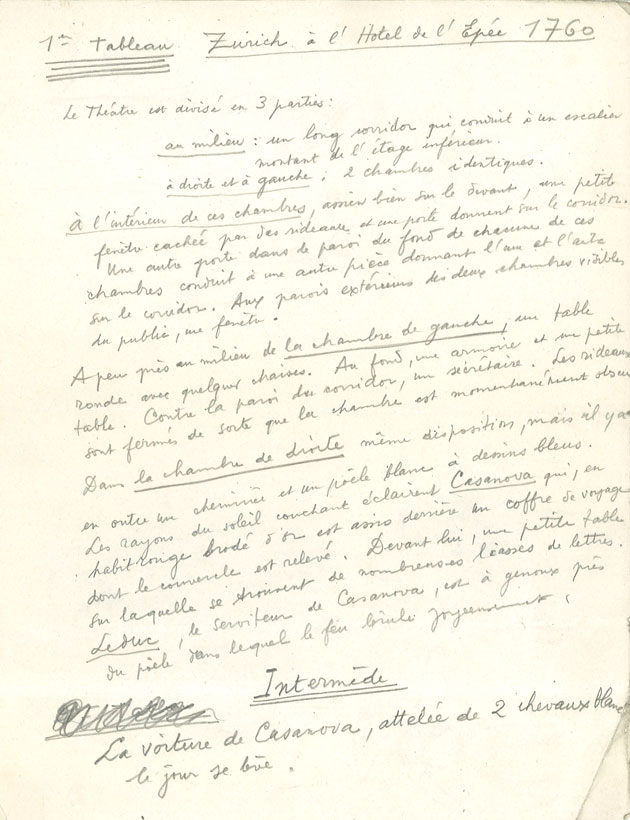 1er Tableau Zürich à l'Hotel de l'Epée 1760
Le Théâtre est divisé en 3 parties :
au milieu : un long corridor qui conduit à un escalier
montant de l'étage inférieur.
à droite et à gauche ; 2 chambres identiques.
À l'intérieur de ces chambres, assien bien sur le devant, une petite
fenêtre cachée par des rideaux et une porte donnent sur le corridor.
Une autre porte dans le paroi du fond de chacune de ces
chambres conduit à une autre pièce donnant l'une et l'autre
sur le corridor. Aux parois extérieures des deux chambres visibles
du public, une fenêtre.
A peu près au milieu de la chambre de gauche, une table
ronde avec quelques chaises. Au fond, une armoire et un petite
table. Contre la paroi du corridor, un secrétaire. Les rideaux
sont fermés de sorte que la chambre est momentanément obscure
Dans la chambre de droite même disposition, mais il y a
en outre un cheminée et un poêle blanc à dessins bleus.
Les rayons du soleil couchant éclairent Casanova qui, en
habit rouge brodé d'or est assis derrière un coffre de voyage
dont le couvercle est relevé. Devant lui, une petite table
sur laquelle se trouvent de nombreuses liasses de lettres.
Leduc, le serviteur de Casanova, est à genoux près
du poêle dans lequel le feu brûle joyeusement.
Intermède
La voiture de Casanova, attelée de 2 chevaux blancs
le jour se lève.